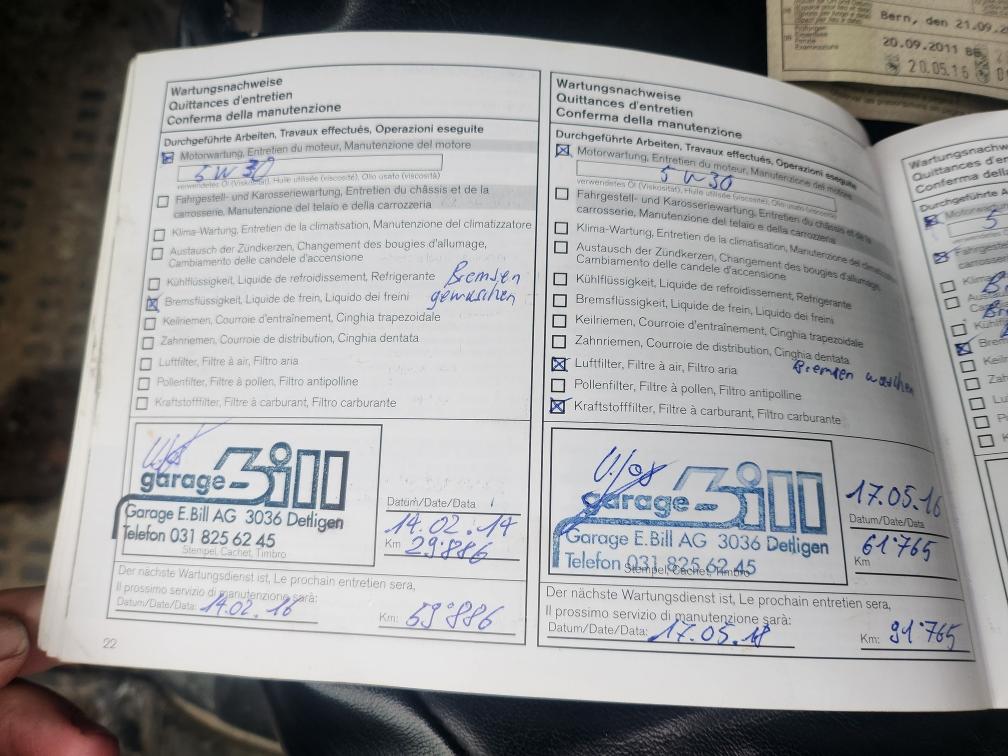 Bern, den 21.09.2
20.09.2011 BE
20.05.16
Wartungsnachweise
Quittances d'entretien
Conferma della manutenzione
Durchgeführte Arbeiten, Travaux effectués, Operazioni eseguite
Motorwartung, Entretien du moteur, Manutenzione del motore
5W30
verwendetes Öl (Viskosität), Huile utilisée (viscosité), Olio usato (viscosità)
Fahrgestell- und Karosseriewartung, Entretien du châssis et de la
carrosserie, Manutenzione del telaio e della carrozzeria
Klima-Wartung, Entretien de la climatisation, Manutenzione del climatizzatore
Austausch der Zündkerzen, Changement des bougies d'allumage,
Cambiamento delle candele d'accensione
Kühlflüssigkeit, Liquide de refroidissement, Refrigerante
Bremsen
Bremsflüssigkeit, Liquide de frein, Liquido dei freini
gewaschen
Keilriemen, Courroie d'entraînement, Cinghia trapezoidale
Zahnriemen, Courroie de distribution, Cinghia dentata
Luftfilter, Filtre à air, Filtro aria
Pollenfilter, Filtre à pollen, Filtro antipolline
Kraftstofffilter, Filtre à carburant, Filtro carburante
garage Bill
Garage E.Bill AG 3036 Detligen
Telefon 031 825 62 45
Stempel, Cachet, Timbro
Datum/Date/Data
14.02.14
Km 29'886
Der nächste Wartungsdienst ist, Le prochain entretien sera,
Il prossimo servizio di manutenzione sarà:
Datum/Date/Data: 14.02.16
Km: 59'886
22
Wartungsnachweise
Quittances d'entretien
Conferma della manutenzione
Durchgeführte Arbeiten, Travaux effectués, Operazioni eseguite
Motorwartung, Entretien du moteur, Manutenzione del motore
5W30
verwendetes Öl (Viskosität), Huile utilisée (viscosité), Olio usato (viscosità)
Fahrgestell- und Karosseriewartung, Entretien du châssis et de la
carrosserie, Manutenzione del telaio e della carrozzeria
Klima-Wartung, Entretien de la climatisation, Manutenzione del
Austausch der Zündkerzen, Changement des bougies d'allumage,
Cambiamento delle candele d'accensione
Kühlflüssigkeit, Liquide de refroidissement, Refrigerante
Bremsflüssigkeit, Liquide de frein, Liquido dei freini
Keilriemen, Courroie d'entraînement, Cinghia trapezoidale
Zahnriemen, Courroie de distribution, Cinghia dentata
Luftfilter, Filtre à air, Filtro aria
Bremsen waschen
Pollenfilter, Filtre à pollen, Filtro antipolline
Kraftstofffilter, Filtre à carburant, Filtro carburante
garage Bill
Garage E.Bill AG 3036 Detligen
Telefon 031 825 62 45
Stempel, Cachet, Timbro
17.05.16
Datum/Date/Data
61'765
Km
Der nächste Wartungsdienst ist, Le prochain entretien sera,
Il prossimo servizio di manutenzione sarà:
Datum/Date/Data: 17.05.18
Km: 91'765
Wartungsnachweis
Quittances d'entre
Conferma della m